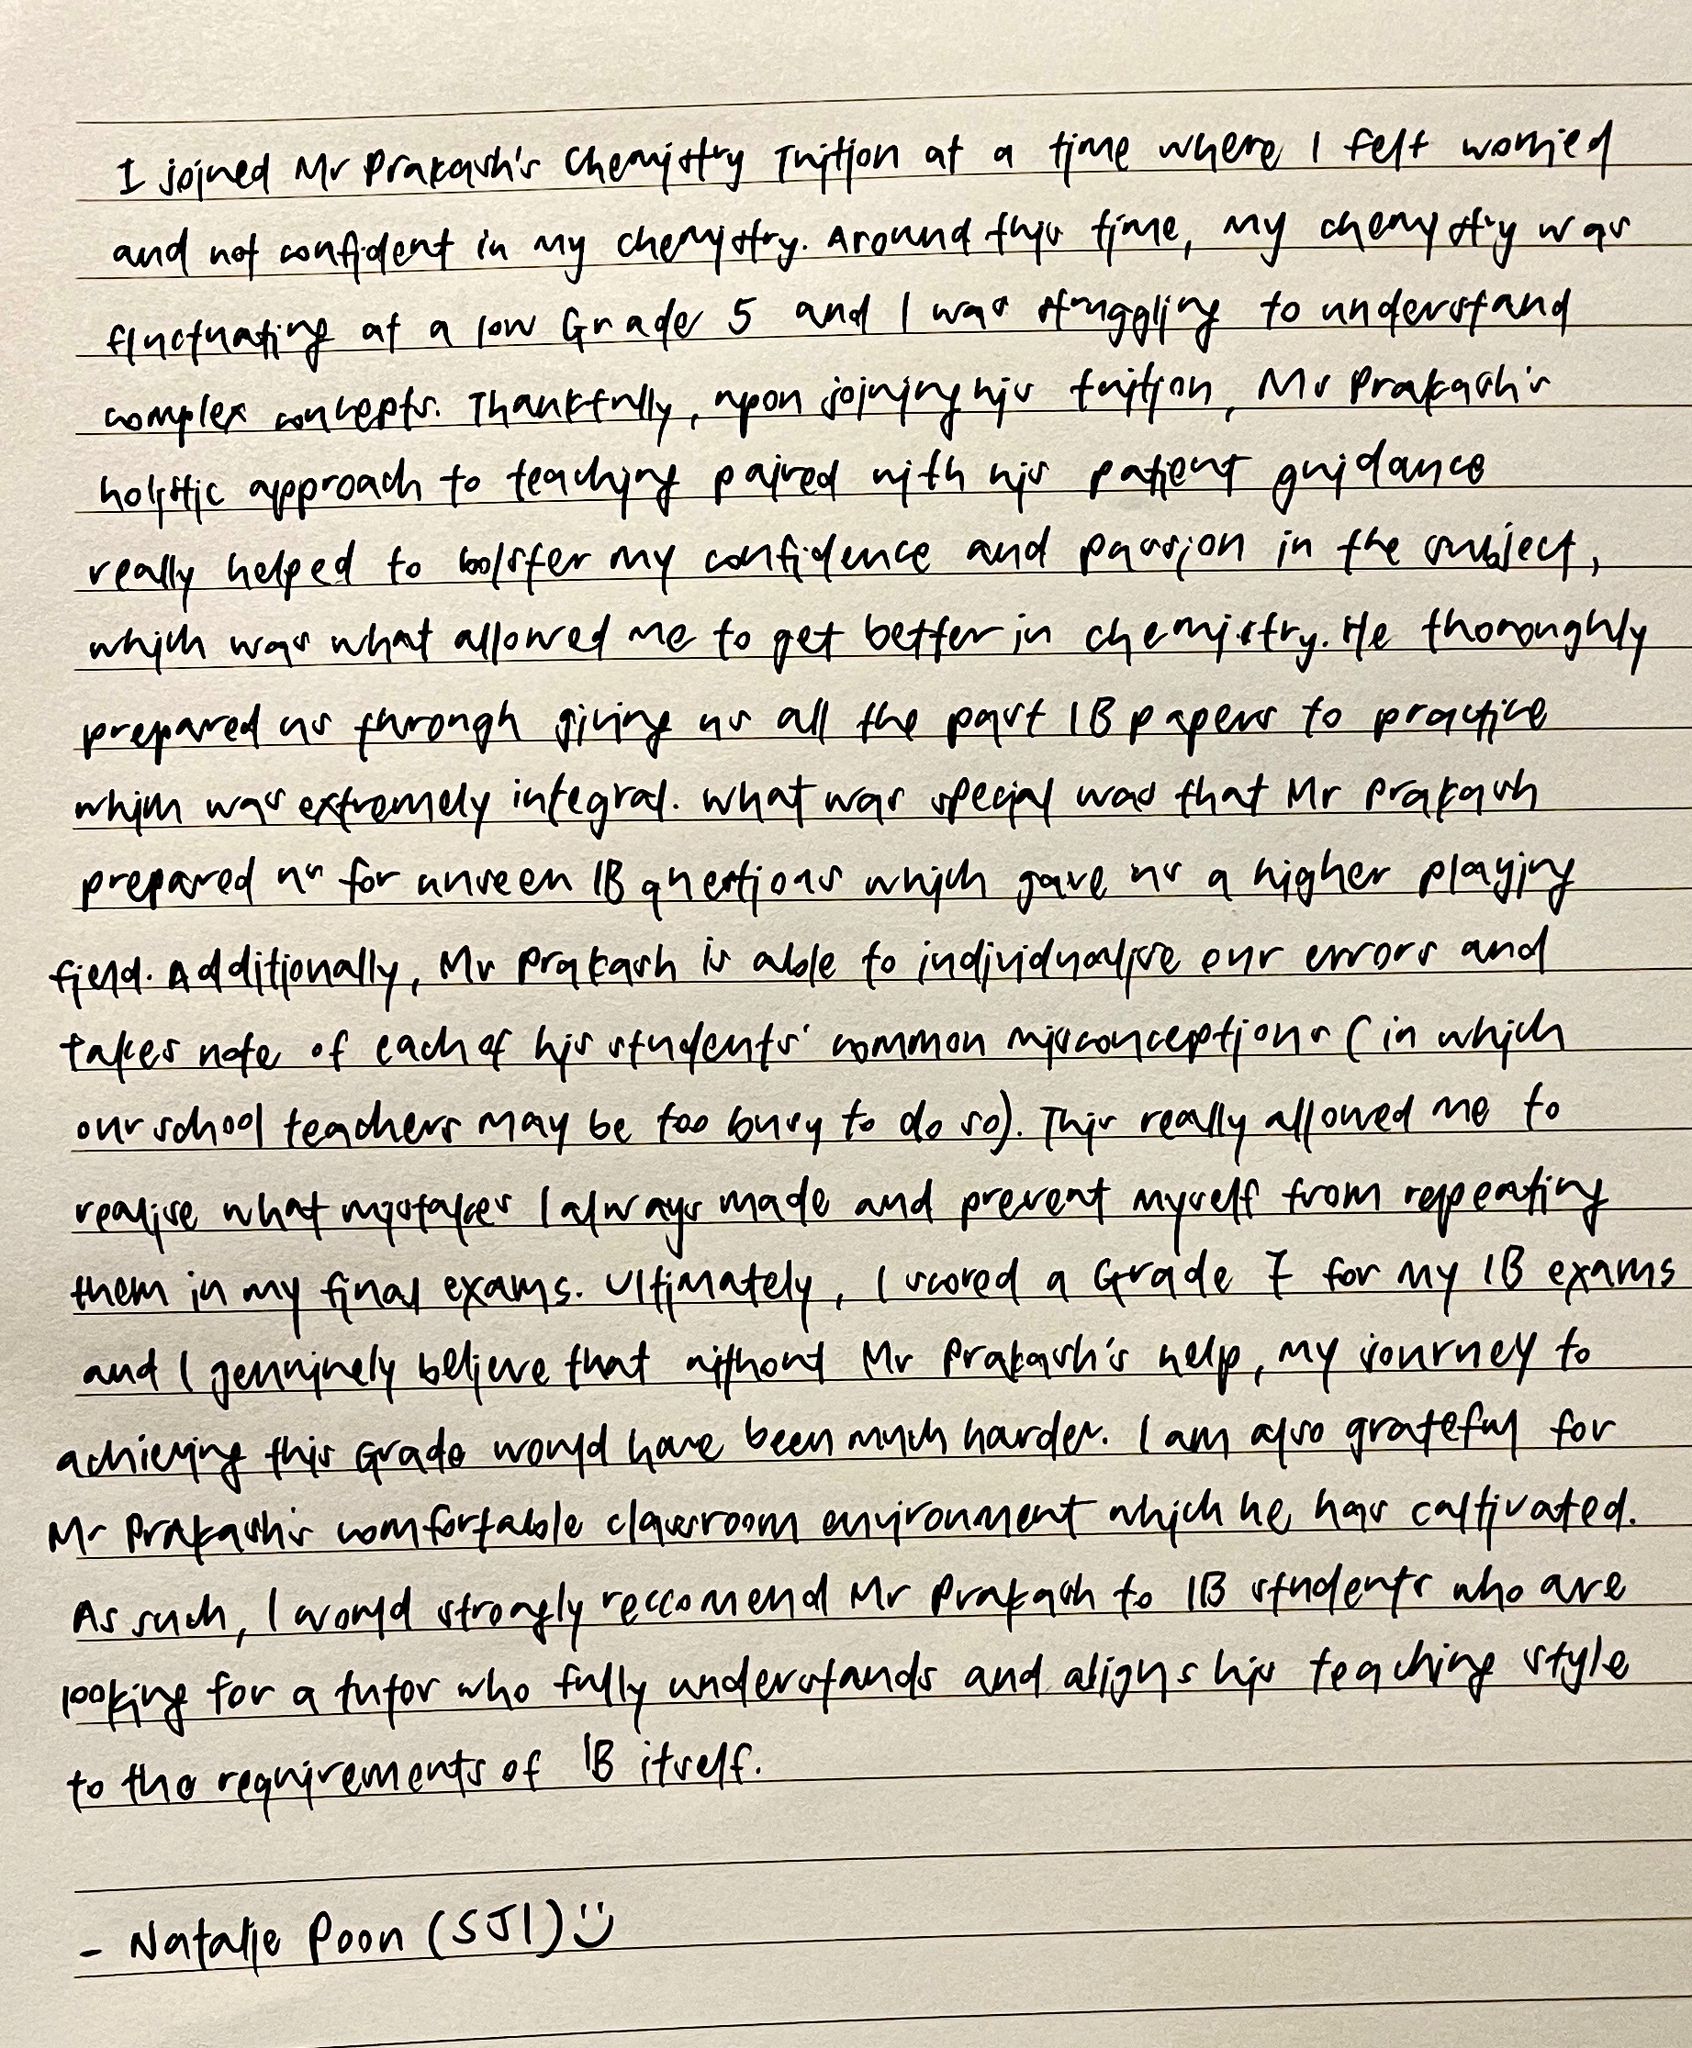 I joined Mr Prakash's Chemistry Tuition at a time where I felt worried
and not confident in my chemistry. Around this time, my chemistry was
fluctuating at a low Grade 5 and I was struggling to understand
complex concepts. Thankfully, upon joining his tuition, Mr Prakash's
holistic approach to teaching paired with his patient guidance
really helped to bolster my confidence and passion in the subject,
which was what allowed me to get better in chemistry. He thoroughly
prepared us through giving us all the past IB papers to practice
which was extremely integral. What was special was that Mr Prakash
prepared us for unseen IB questions which gave us a higher playing
field. Additionally, Mr Prakash is able to individualise our errors and
takes note of each of his students' common misconceptions (in which
our school teachers may be too busy to do so). This really allowed me to
realise what mistakes I always made and prevent myself from repeating
them in my final exams. Ultimately, I scored a Grade 7 for my IB exams
and I genuinely believe that without Mr Prakash's help, my journey to
achieving this Grade would have been much harder. I am also grateful for
Mr Prakash's comfortable classroom environment which he has caltivated.
As such, I would strongly reccomend Mr Prakash to IB students who are
looking for a tutor who fully understands and aligns his teaching style
to the requirements of IB itself.
- Natalie Poon (SJI)